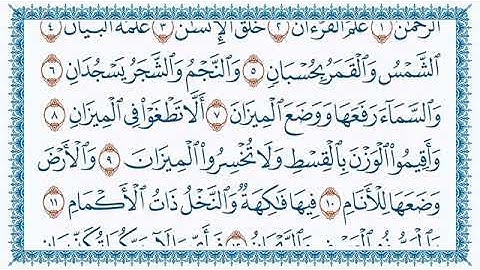 ٱلرَّحۡمَٰنُ ١ عَلَّمَ ٱلۡقُرۡءَانَ ٢ خَلَقَ ٱلۡإِنسَٰنَ ٣ عَلَّمَهُ ٱلۡبَيَانَ ٤
ٱلشَّمۡسُ وَٱلۡقَمَرُ بِحُسۡبَانٖ ٥ وَٱلنَّجۡمُ وَٱلشَّجَرُ يَسۡجُدَانِ ٦
وَٱلسَّمَآءَ رَفَعَهَا وَوَضَعَ ٱلۡمِيزَانَ ٧ أَلَّا تَطۡغَوۡاْ فِي ٱلۡمِيزَانِ ٨
وَأَقِيمُواْ ٱلۡوَزۡنَ بِٱلۡقِسۡطِ وَلَا تُخۡسِرُواْ ٱلۡمِيزَانَ ٩ وَٱلۡأَرۡضَ
وَضَعَهَا لِلۡأَنَامِ ١٠ فِيهَا فَٰكِهَةٞ وَٱلنَّخۡلُ ذَاتُ ٱلۡأَكۡمَامِ ١١